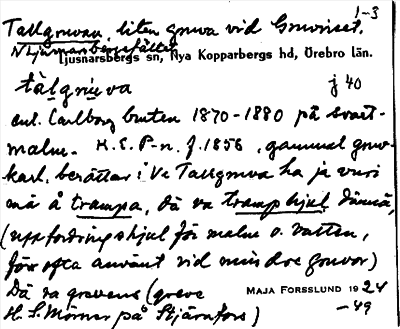 1-3
Tallgruvan, liten gruva vid Gruvriset,
N Ljusnarsbergsfältet
Ljusnarsbergs sn, Nya Kopparbergs hd, Örebro län.
tàlgrùva
j 40
enl. Carlborg bruten 1870-1880 på svart-
malm. K.E. P-n. f. 1856, gammal gruv-
karl, berättar: Ve Tallgruva ha ja vuri
mä å trampa, dä va tramphjul därnä,
(uppfordringshjul för malm o. vatten,
för ofta använt vid mindre gruvor)
Dä va grevens (greve
H. S. Mörner på Stjärnfors)
MAJA FORSSLUND 1924
-49